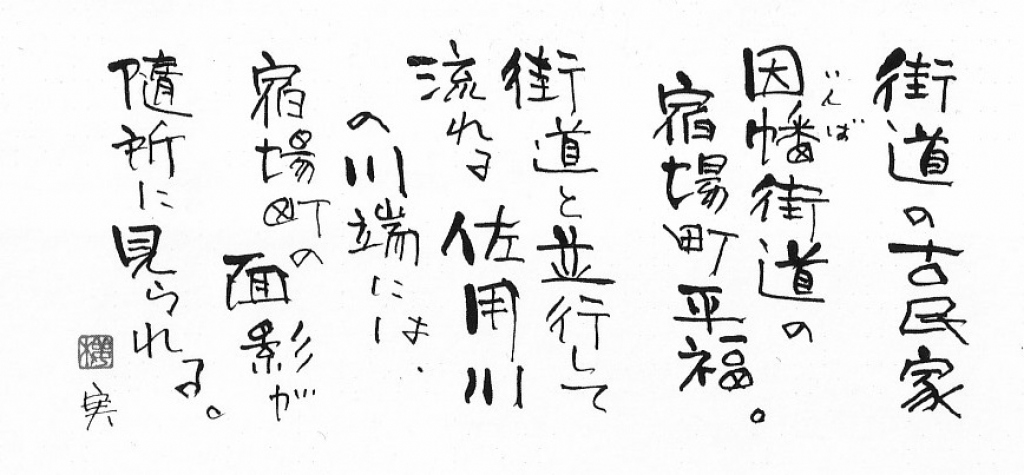 街道の古民家
因幡街道の
いんば
宿場町平福。
街道と並行して
流れる佐用川
の川端には、
宿場町の
面影が
随所に見られる。
実